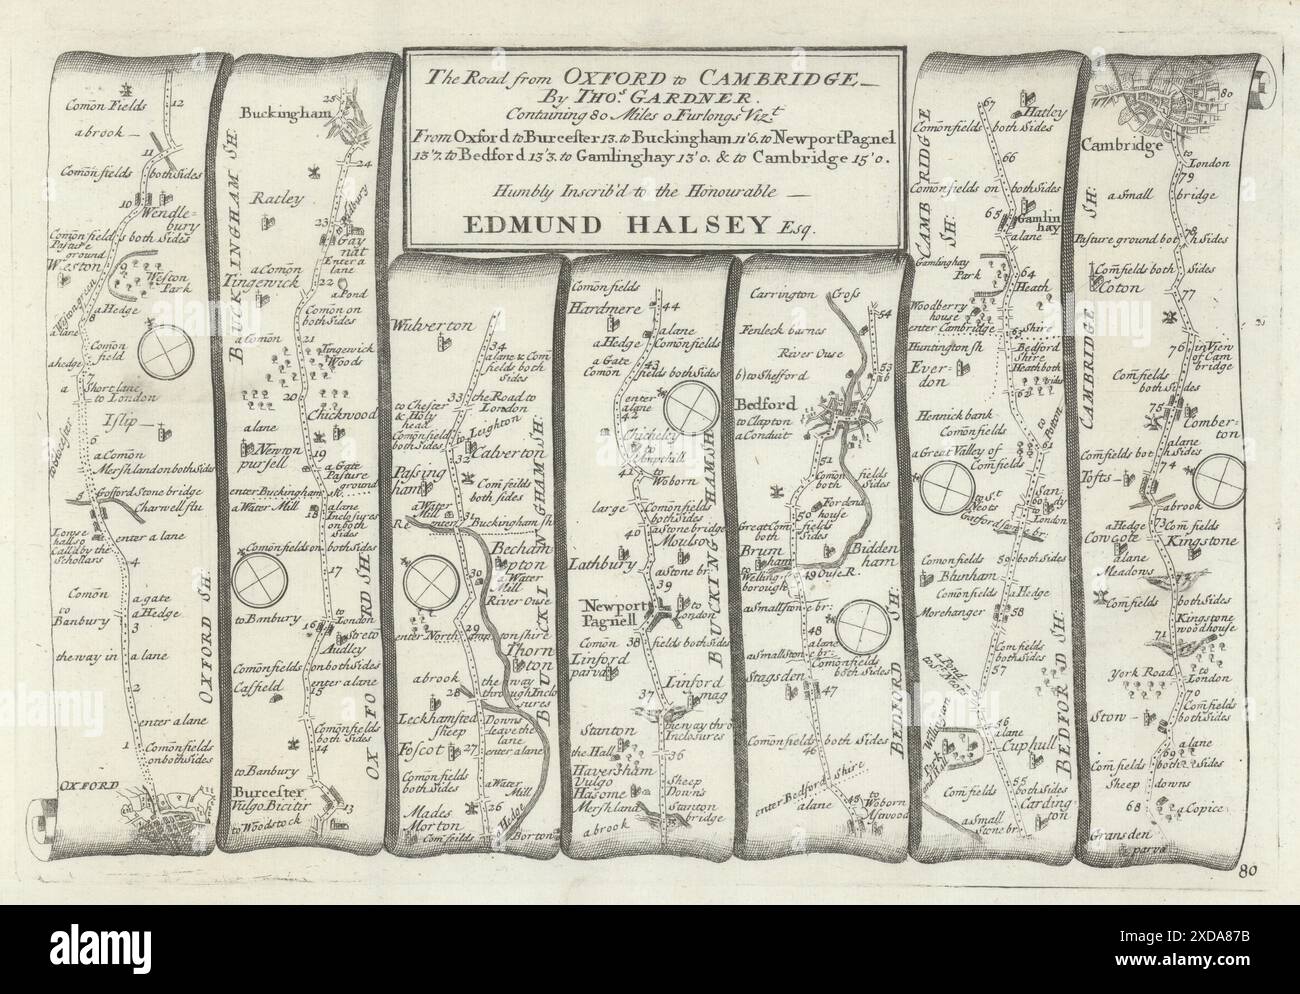 The Road from OXFORD to CAMBRIDGE
By THOS. GARDNER.
Containing 80 Miles 0 Furlongs Vizt
From Oxford to Burcester 13. to Buckingham 11'6. to Newport Pagnel
13'7. to Bedford 13'3. to Gamlinghay 13'0. & to Cambridge 15'0.
Humbly Inscrib'd to the Honourable
EDMUND HALSEY Esq.
Comōn Fields
12
a brook
11
Comōn fields both Sides
10
Wendle-
bury
Comōn fields both Sides
Pasture
ground
Weston
9
Weston
Park
8
a lane
a Hedge
Comōn
field
a hedge
7
a
Short lane
to London
Islip
6
a Comōn
Mersh land on both Sids
5
Gosford Stone bridge
Charwell flu
enter a lane
Call'd by the
Schollars
4
Comōn
a gate
to
Banbury
a Hedge
3
the way in
a lane
2
enter a lane
1
Comōn fields
on both Sides
OXFORD
OXFORD SH.
25
Buckingham
24
BUCKINGHAM SH.
Ratley
23
to Padbury
Gay
nut
Enter a
lane
a Comōn
Tingewick
22
a Pond
Comōn on
both Sides
a Comōn
21
Tingewick
Woods
20
Chickwood
a lane
Newton
pursell
19
a Gate
Pasture
ground
enter Buckingham
sh.
a Water Mill
18
a lane
Inclosures
on both
Sides
Comōn fields on both Sides
17
to Banbury
to
London
16
Streto
Audley
OXFORD SH.
Comōn fields on both Sides
Casfield
enter a lane
15
Comōn fields
both Sides
14
to Banbury
Burcester
Vulgo Biciter
13
to Woodstock
Wulverton
34
a lane & Com
fields both
Sides
33
the Road to
London
to Chester
& Holy
head
Comōn fields
both Sides
to Leighton
32
Calverton
Passing
ham
Com fields
both sides
a Water
Mill
31
enter Buckingham sh
Becham
pton
a Water
Mill
30
River Ouse
29
enter Northamptonshire
Thorn
ton
BUCKINGHAM SH.
a brook
28
the way
through Inclo
sures
Leckhamsted
sheep
Downs
leave the
lane
Foscot
27
enter a lane
Comōn fields
both Sides
a Water
Mill
26
Mades
Morton
Com feilds
a Hedge
Borton
Comōn fields
44
Hardmere
a lane
a Hedge
Comōn fields
a Gate
43
Comōn
fields both Sides
enter
a lane
42
Chicheley
Church ill
41
to
Woborn
large
Comōn fields
both Sides
40
a Stone bridge
Moulso
Lathbury
a Stone br.
39
Newport
Pagnell
to
London
38
Comōn
fields both Sides
Linford
parva
BUCKINGHAM SH.
37
Linford
mag
Stanton
the way thro
Inclosures
the Hall
36
Haversham
Vulgo
Hasome
Sheep
Downs
Mersh land
Stanton
bridge
a brook
35
Carrington Cross
54
Fenleck barnes
River Ouse
53
to Shefford
Bedford
52
to Clapton
a Conduit
51
Comōn
fields
both
Sides
Fordend
house
50
Great Com
both
fields
Sides
Brum
ham
Bidden
ham
to
Welling-
borough
49
Ouse R.
a small stone br:
48
a lane
a small stone br:
Comōn fields
both Sides
Stagsden
47
BEDFORD SH.
Comōn fields both Sides
46
enter Bedford Shire
a lane
45
to Woborn
Aswood
67
Hatley
CAMBRIDGE SH.
Comōn fields both Sides
66
Comōn fields on both Sides
65
Gamlin
hay
a lane
Gamlinghay
Park
64
Heath
Woodberry
house
enter Cambridge Shire
63
Huntington sh
Bedford
Shire
Heath both
Sides
Ever-
don
62
Hennick bank
Comōn fields
61
a Great Valley of
Com fields
San
dy
60
to St.
Neots
to
London
Comōn fields both Sides
59
Blunham
Comōn fields
a Hedge
Morehanger
58
Com fields
both Sides
57
56
a lane
Cuphull
Willington
BEDFORD SH.
55
Com fields
both Sides
Carding
ton
a Small
Stone br.
80
Cambridge
to
London
79
SH.
a Small bridge
78
Pasture ground both Sides
Com fields both Sides
Coton
77
CAMBRIDGE
76
in View
of Cam
bridge
Com fields both Sides
75
Comber-
ton
a lane
Com fields both Sides
74
Tofts
a brook
a Hedge
73
Com fields
Cowcote
Kingstone
a lane
Meadows
72
Com fields
both Sides
Kingstone
wood house
71
York Road
to
London
70
Stow
Com fields
both Sides
a lane
69
Com fields both Sides
Sheep downs
68
a Copice
Gransden
parva
80
alamy
alamy
Image ID: 2XDA87B
www.alamy.com